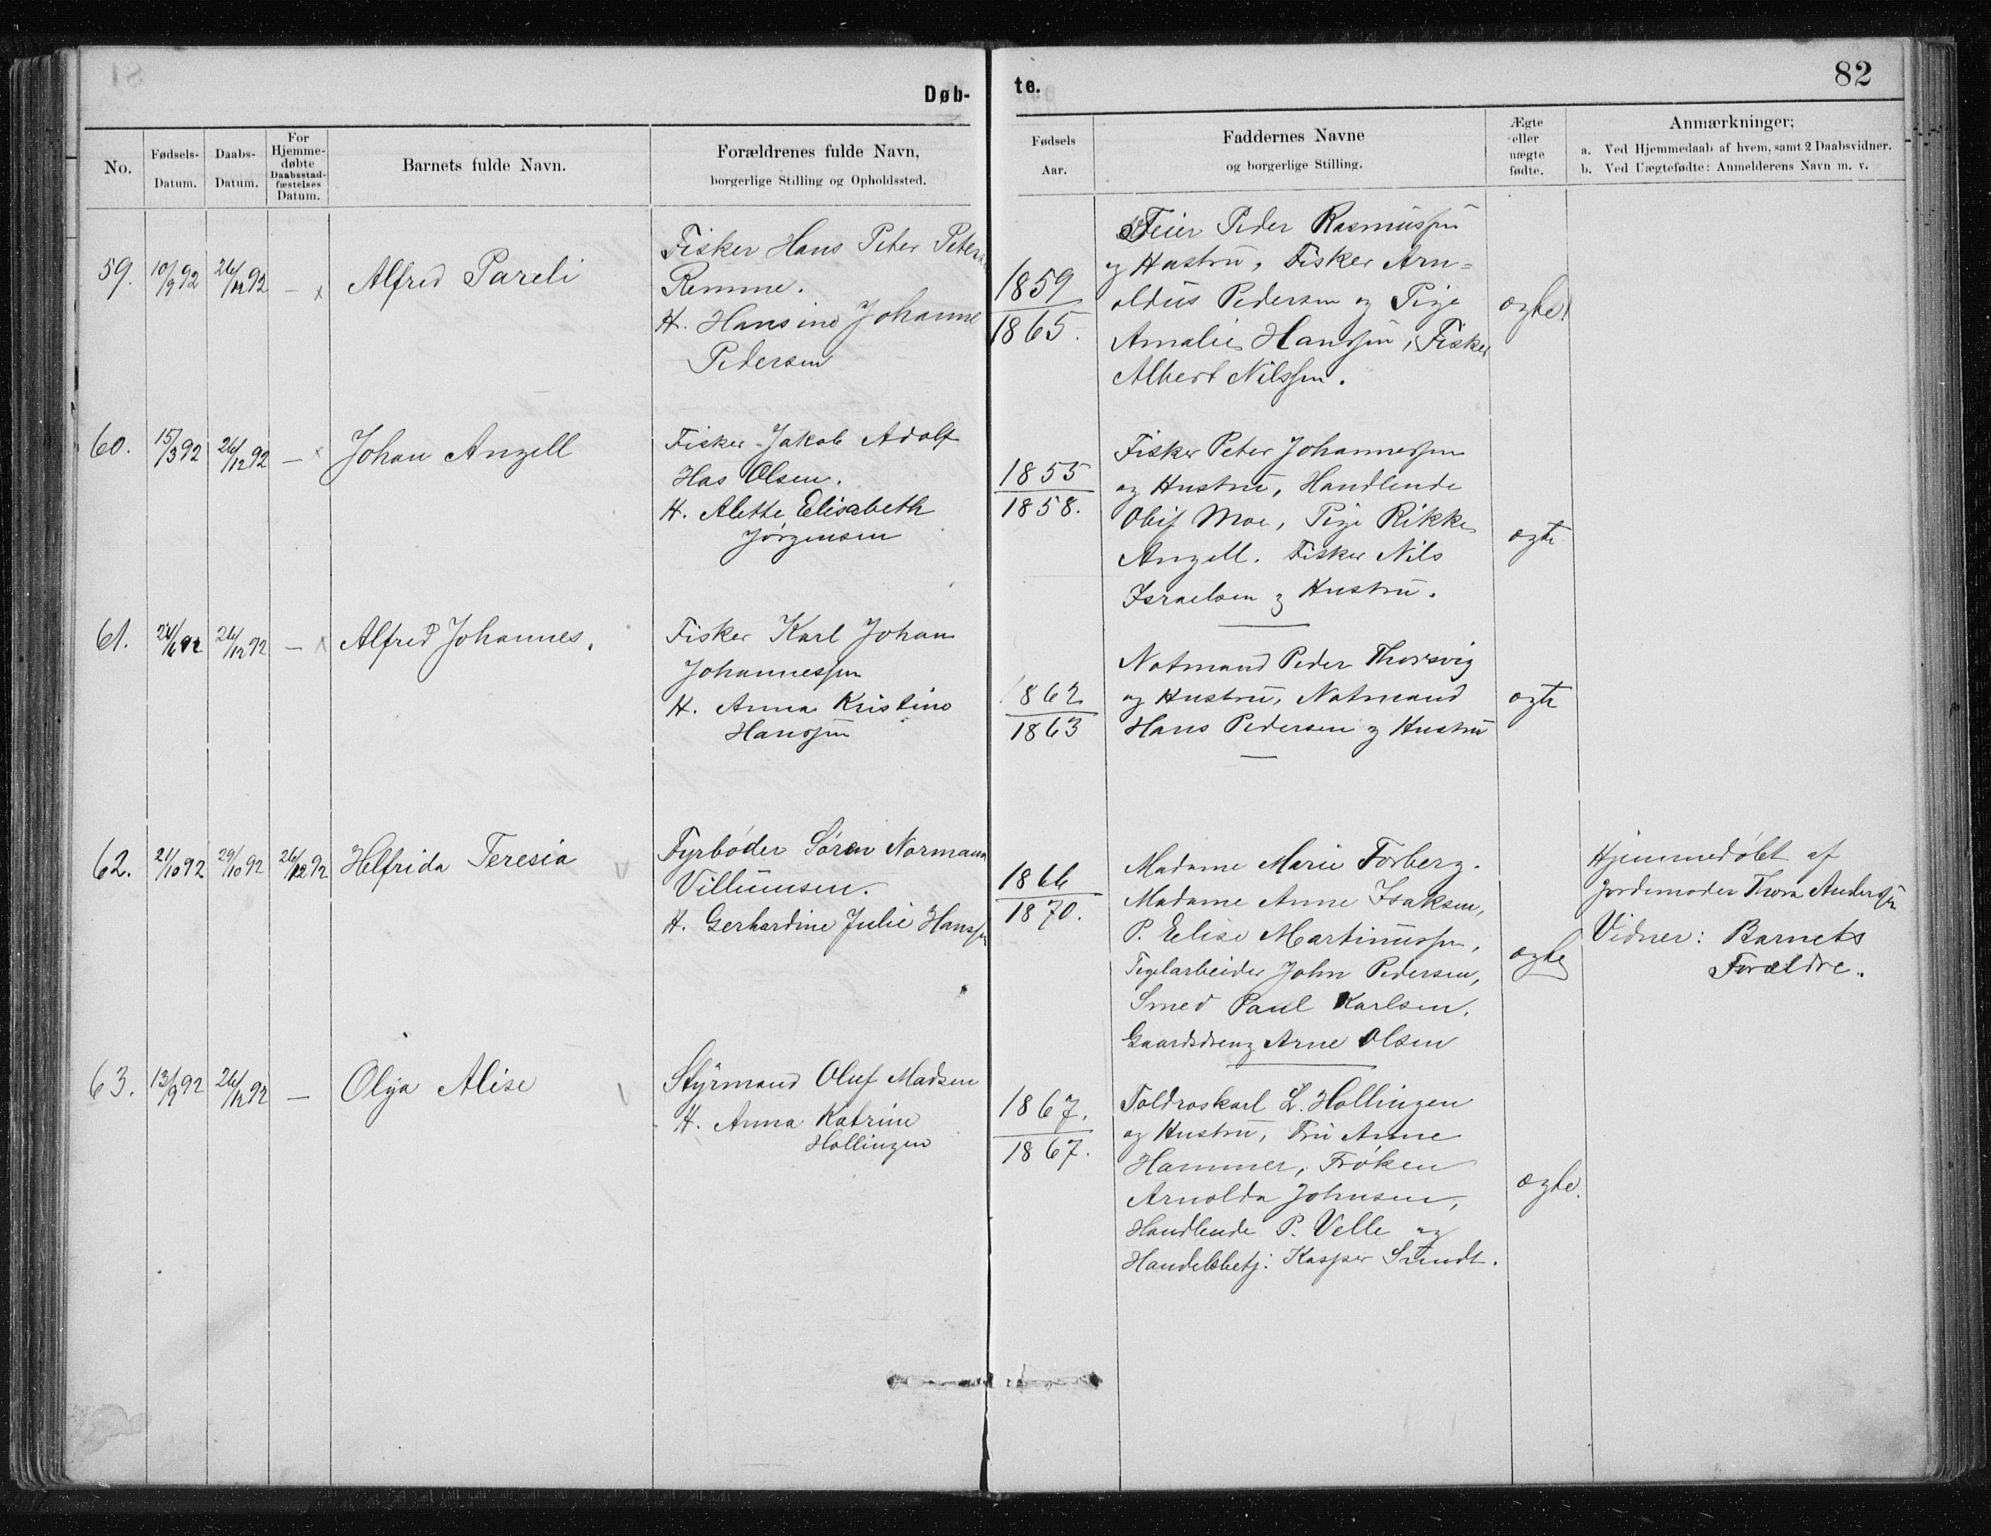 Døb-
te.
82
No.
Fødsels-
Datum.
Daabs-
Datum.
For
Hjemme-
døbte
Daabsstad-
fæstelses
Datum.
Barnets fulde Navn.
Forældrenes fulde Navn,
borgerlige Stilling og Opholdssted.
Fødsels
Aar.
Faddernes Navne
og borgerlige Stilling.
Ægte
eller
uægte
fødte.
Anmærkninger;
a. Ved Hjemmedaab af hvem, samt 2 Daabsvidner.
b. Ved Uægtefødte: Anmelderens Navn m. v.
59. 10/9 92 26/12 92 —
Alfred Pareli
Fisker Hans Peter
Remme.
H. Hansine Johanne
Pedersen
1859
1865.
Feier Peder Rasmussen
og Hustru, Fisker Arn=
oldus Pedersen og Pige
Amalie Hanssen, Fisker
Albert Nilssen.
ægte
60. 15/3 92 26/12 92 —
Johan Angell
Fisker Jakob Adolf
Has Olsen.
H. Alette Elisabeth
Jørgensen
1855
1858.
Fisker Peter Johannessen
og Hustru, Handlende
Olif Moe, Pige Rikke
Angell. Fisker Nils
Israelsen og Hustru.
ægte
61. 26/12 92 —
Alfred Johannes.
Fisker Karl Johan
Johannessen
H. Anna Kristine
Hanssen
1862
1863
Notmand Peder Thorsvig
og Hustru, Notmand
Hans Pedersen og Hustru
ægte
62. 21/10 92 29/10 92 26/12 92
Helfrida Teresia
Fyrbøder Søren Normann
Villumsen.
H. Gerhardine Julie Hanssen
1866
1870.
Madame Marie Forberg.
Madame Anne Isaksen,
P. Elise Martinussen,
Teglarbeider John Pedersen,
Smed Paul Karlsen,
Gaardsdreng Arne Olsen
ægte
Hjemmedøbt af
Jordemoder Thora Anderssen
Vidner: Barnets
Forældre.
63. 13/9 92 26/12 92 —
Olga Alise
Styrmand Oluf Madsen
H. Anna Katrine
Hollingen
1867.
1867.
Toldroskarl L. Hollingen
og Hustru, Fru Anne
Hammer, Frøken
Arnolda Johnsen,
Handlende P. Velle og
Handelsbetj: Kasper Sundt.
ægte.